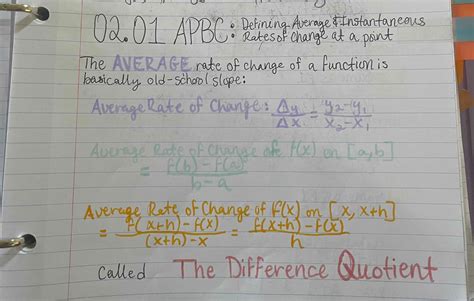 02.01 APBC: Defining Average & Instantaneous
Rates of Change at a point
The AVERAGE rate of change of a function is
basically old-school slope:
Average Rate of Change: Δy/Δx = y₂-y₁/x₂-x₁
Average Rate of Change of f(x) on [a,b]
= f(b)-f(a)/b-a
Average Rate of Change of f(x) on [x, x+h]
= f(x+h)-f(x)/(x+h)-x = f(x+h)-f(x)/h
called The Difference Quotient